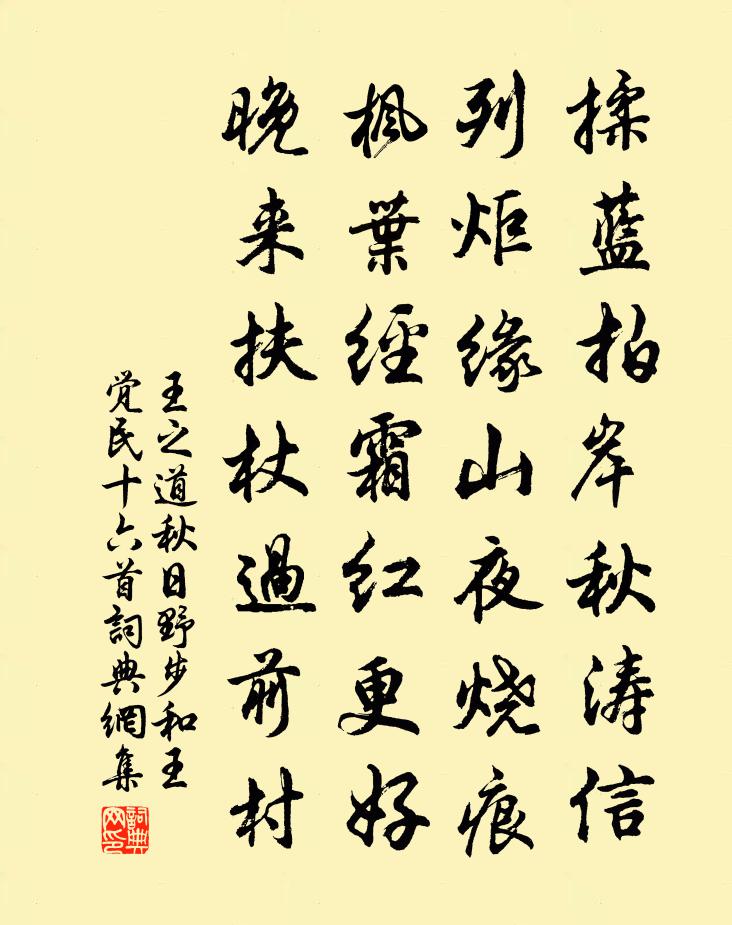 揉藍拍岸秋涛信
列炬缘山夜烧痕
枫葉經霜红更好
晚来扶杖過前村
王之道秋日野步和王
覚民十六首詞典網集
詞典
网印